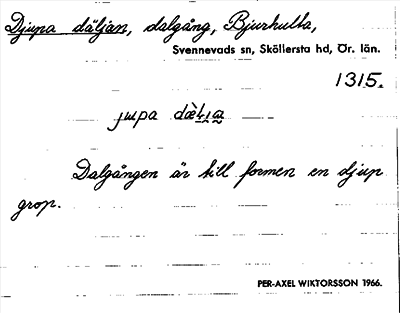 Djupa däljan, dalgång, Bjurhulta,
Svennevads sn, Sköllersta hd, Ör. län.
1315.
jupa
Dalgången är till formen en djup
grop.
PER-AXEL WIKTORSSON 1966.